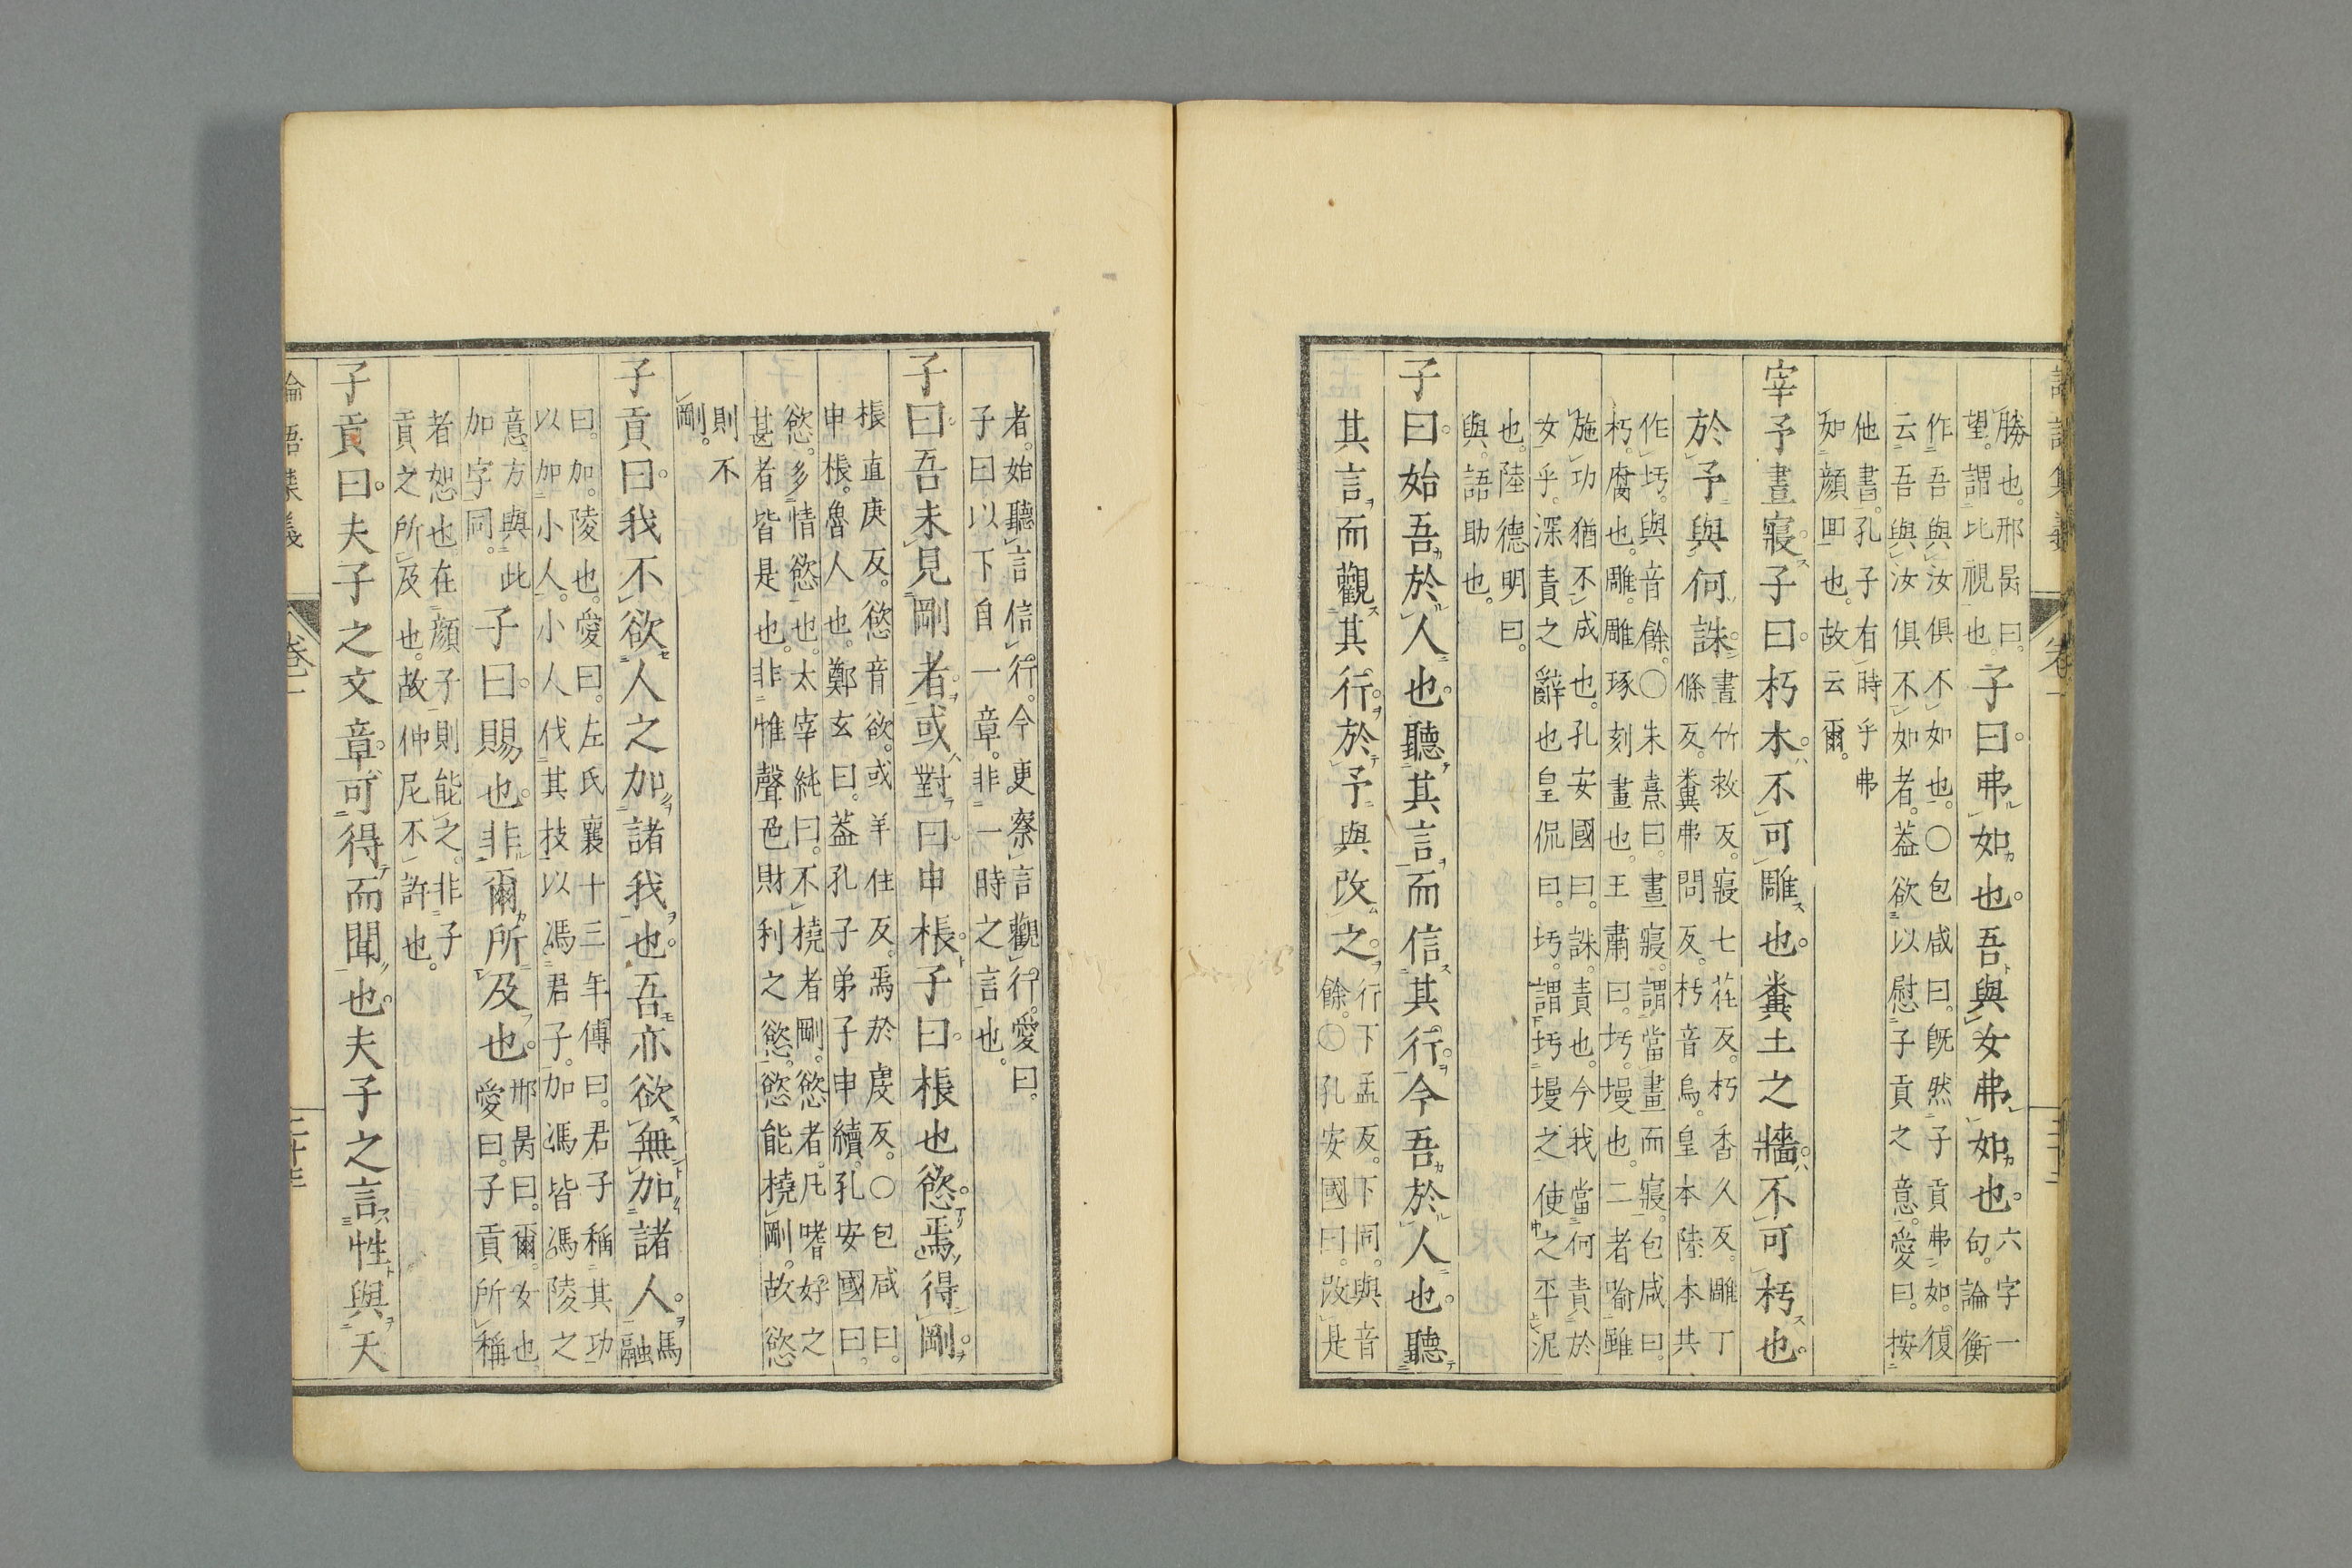 勝也。邢昺曰。
望。謂比視也。
子曰。弗如也。吾與女弗如也。
六字一
句。論衡
作吾與汝俱不如也。〇包咸曰。既然子貢弗如。復
云吾與汝俱不如者。蓋欲以慰子貢之意。愛曰。按
他書。孔子有時乎弗
如顏回也。故云爾。
宰予晝寢子曰。朽木。不可雕也。糞土之牆。不可杇也。
於予與何誅。
晝竹救反。寢七荏反。朽香久反。雕丁
條反。糞弗問反。杇音烏。皇本陸本共
作圬。與音餘。〇朱熹曰。晝寢。謂當晝而寢。包咸曰。
朽。腐也。雕。雕琢刻畫也。王肅曰。圬。墁也。二者喻雖
施功猶不成也。孔安國曰。誅。責也。今我當何責於
女乎。深責之辭也皇侃曰。圬。謂圬墁之使之平泥
也。陸德明曰。
與。語助也。
子曰。始吾於人也。聽其言而信其行。今吾於人也。聽
其言而觀其行。於予與改之。
行下孟反。下同。與音
餘。〇孔安國曰。改是
者。始聽言信行。今更察言觀行。愛曰。
子曰以下自一章。非一時之言也。
子曰。吾未見剛者。或對曰。申棖。子曰。棖也慾。焉得剛。
棖直庚反。慾音欲。或羊住反。焉於虔反。〇包咸曰。
申棖。魯人也。鄭玄曰。蓋孔子弟子申續。孔安國曰。
慾。多情慾也。太宰純曰。不橈者剛。慾者。凡嗜好之
甚者皆是也。非惟聲色財利之慾。慾能橈剛。故慾
則不
剛。
子貢曰。我不欲人之加諸我也。吾亦欲無加諸人。
馬
融
曰。加。陵也。愛曰。左氏襄十三年傳曰。君子稱其功
以加小人。小人伐其技以馮君子。加馮皆馮陵之
意。方與此
加字同。
子曰。賜也。非爾所及也。
邢昺曰。爾。女也
愛曰。子貢所稱
者恕也在顏子則能之。非子
貢之所及也。故仲尼不許也。
子貢曰。夫子之文章。可得而聞也。夫子之言性與天